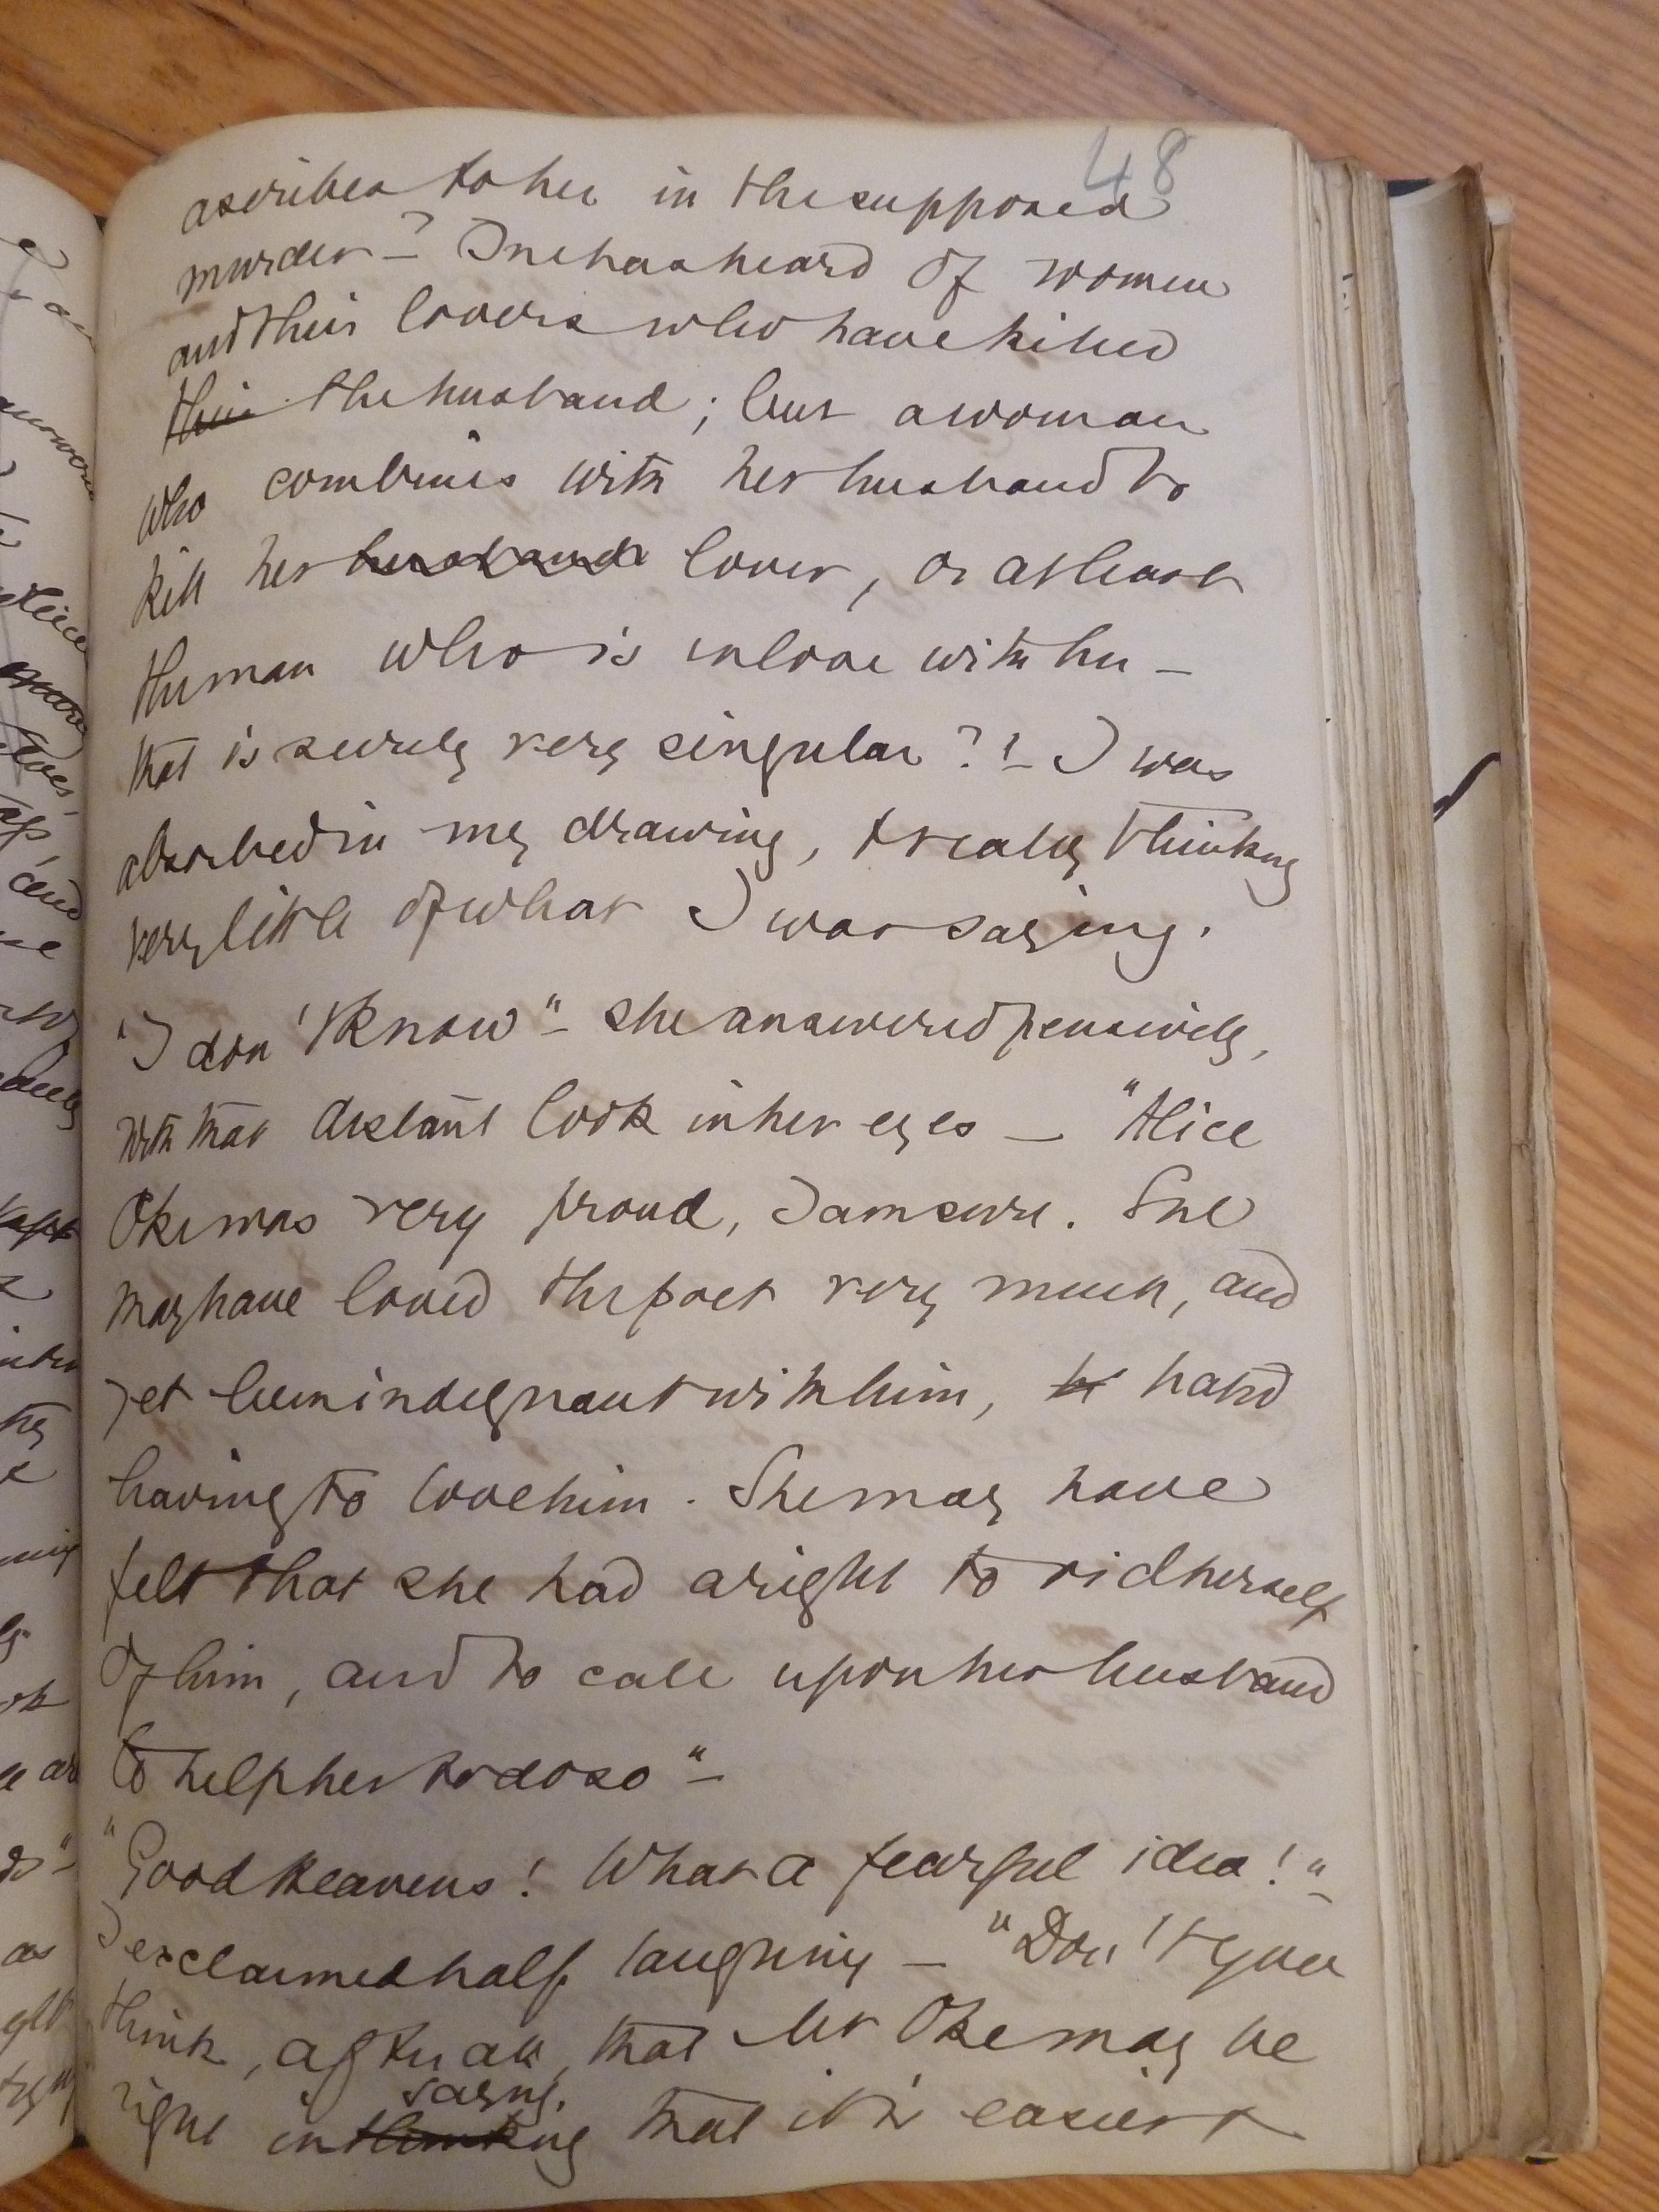 48
ascribed to her in the supposed
murder –? One has heard of women
and their lovers who have killed
their the husband; but a woman
who combines with her husband to
kill her husband lover, or at least
the man who is in love with her –
that is surely very singular?" – I was
absorbed in my drawing, & really thinking
very little of what I was saying.
"I don't know" – she answered pensively,
with that distant look in her eyes – "Alice
Oke was very proud, I am sure. She
may have loved the poet very much, and
yet been indignant with him, hated
having to love him. She may have
felt that she had a right to rid herself
of him, and to call upon her husband
to help her to do so" –
"Good heavens! What a fearful idea!" –
I exclaimed half laughing – "Don't you
think, after all, that Mr Oke may be
saying,
right in thinking that it is easier &